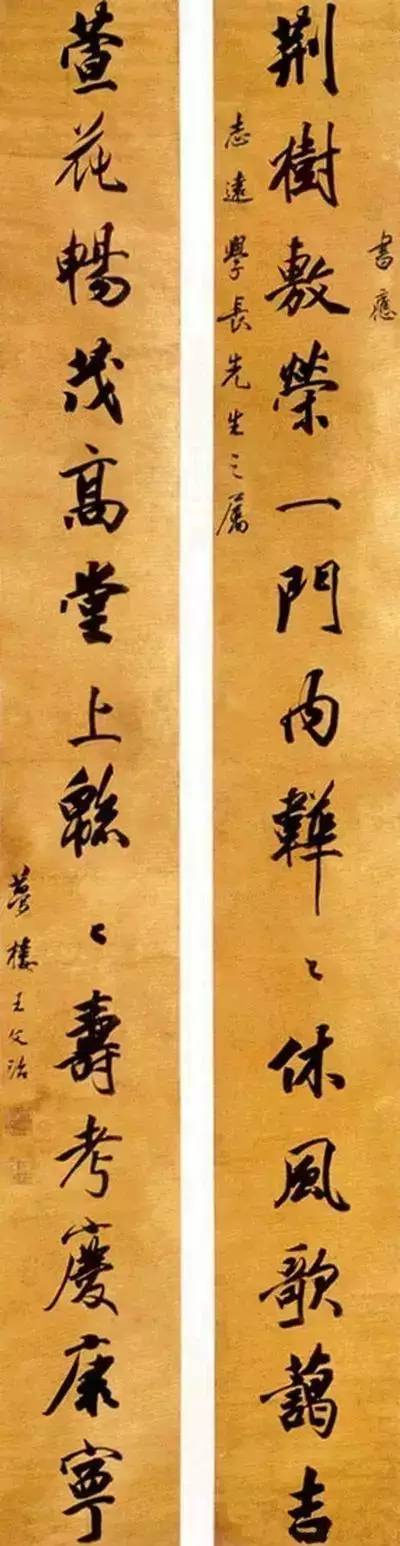 書應
荆樹敷榮一門内韡〻休風歌藹吉
志遠學長先生之屬
萱花暢茂高堂上緜〻壽考慶康寧
夢樓王文治